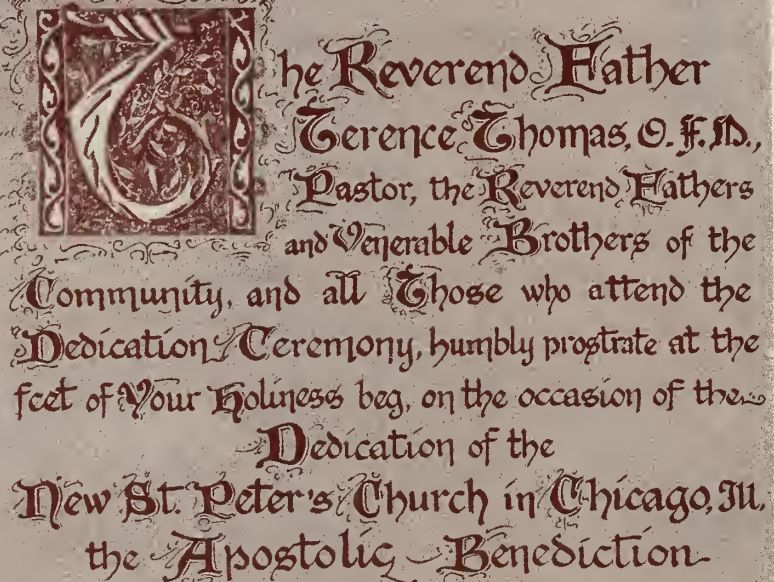 The Reverend Father
Terence Thomas, O. F. M.,
Pastor, the Reverend Fathers
and Venerable Brothers of the
Community, and all Those who attend the
Dedication Ceremony, humbly prostrate at the
feet of Your Holiness beg, on the occasion of the
Dedication of the
New St. Peter's Church in Chicago, Ill.
the Apostolic Benediction